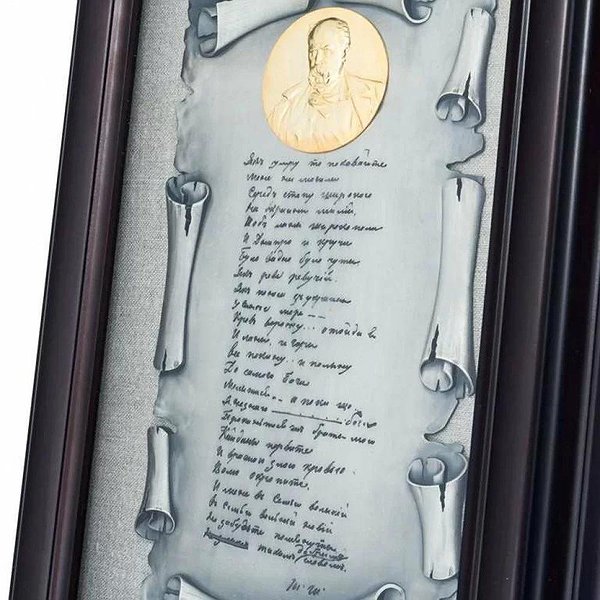 Якъ умру то поховайте
Мене на могили
Середъ степу широкого
На Вкраини милий,
Щобъ ланы широкополи
И Днипро и кручи
Було видно було чути
Якъ реве ревучий.
Якъ понесе зъ Украины
У синее море --
Кровъ ворожу... отойди я
И ланы, и горы
Все покину и полыну
До самого Бога
Молитися... а поки що
Я не знаю Бога
Поховайте та вставайте
Кайданы порвите
И вражою злою кровъю
Волю окропите.
И мене въ семьи великий
Въ семьи вольний новий
Не забудьте помянути
тихимъ словомъ.